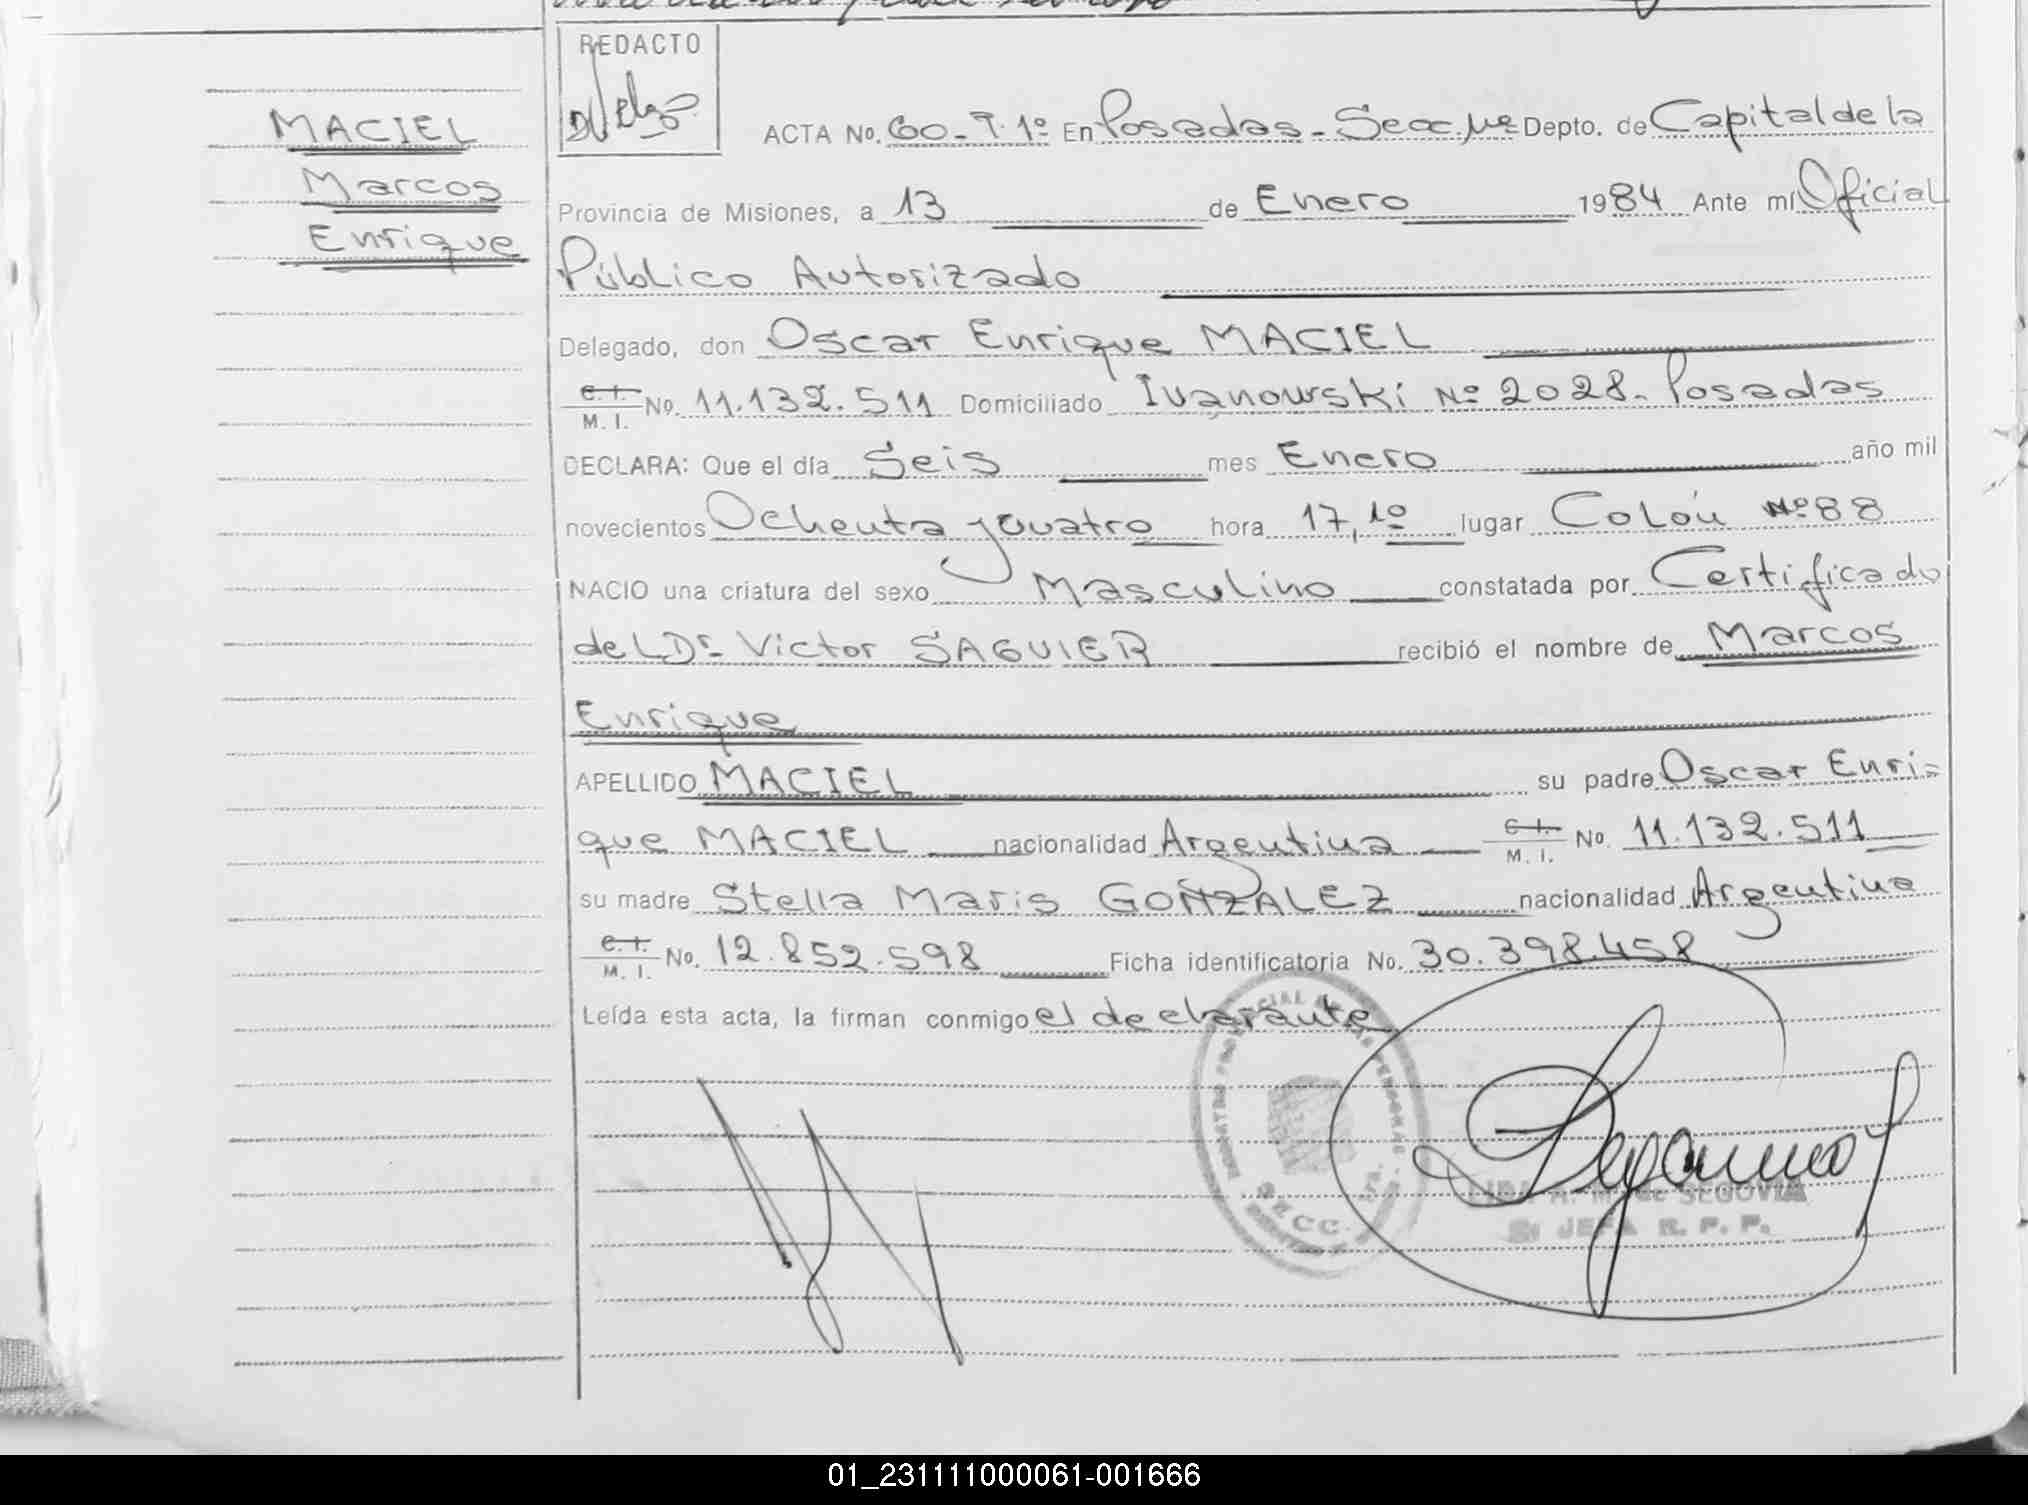 REDACTO
MACIEL
Marcos
Enrique
ACTA No. 60 - T. 1º En Posadas - Secc. Depto. de Capital de la
Provincia de Misiones, a 13 de Enero 1984 Ante mí Oficial
Público Autorizado
Delegado, don Oscar Enrique MACIEL
C. I. M. I. No. 11.132.511 Domiciliado Ivanowski Nº 2028. Posadas
DECLARA: Que el día Seis mes Enero año mil
novecientos Ochenta y Cuatro hora 17,10 lugar Colón Nº 88
NACIO una criatura del sexo Masculino constatada por Certificado
del Dr. Victor SAGUIER recibió el nombre de Marcos
Enrique
APELLIDO MACIEL su padre Oscar Enri=
que MACIEL nacionalidad Argentina C. I. M. I. No. 11.132.511
su madre Stella Maris GONZALEZ nacionalidad Argentina
C. I. M. I. No. 12.852.598 Ficha identificatoria No. 30.398.458
Leída esta acta, la firman conmigo el declarante
R. C. C.
A. M. de SEGOVIA
JEFA R. P. P.
01_231111000061-001666